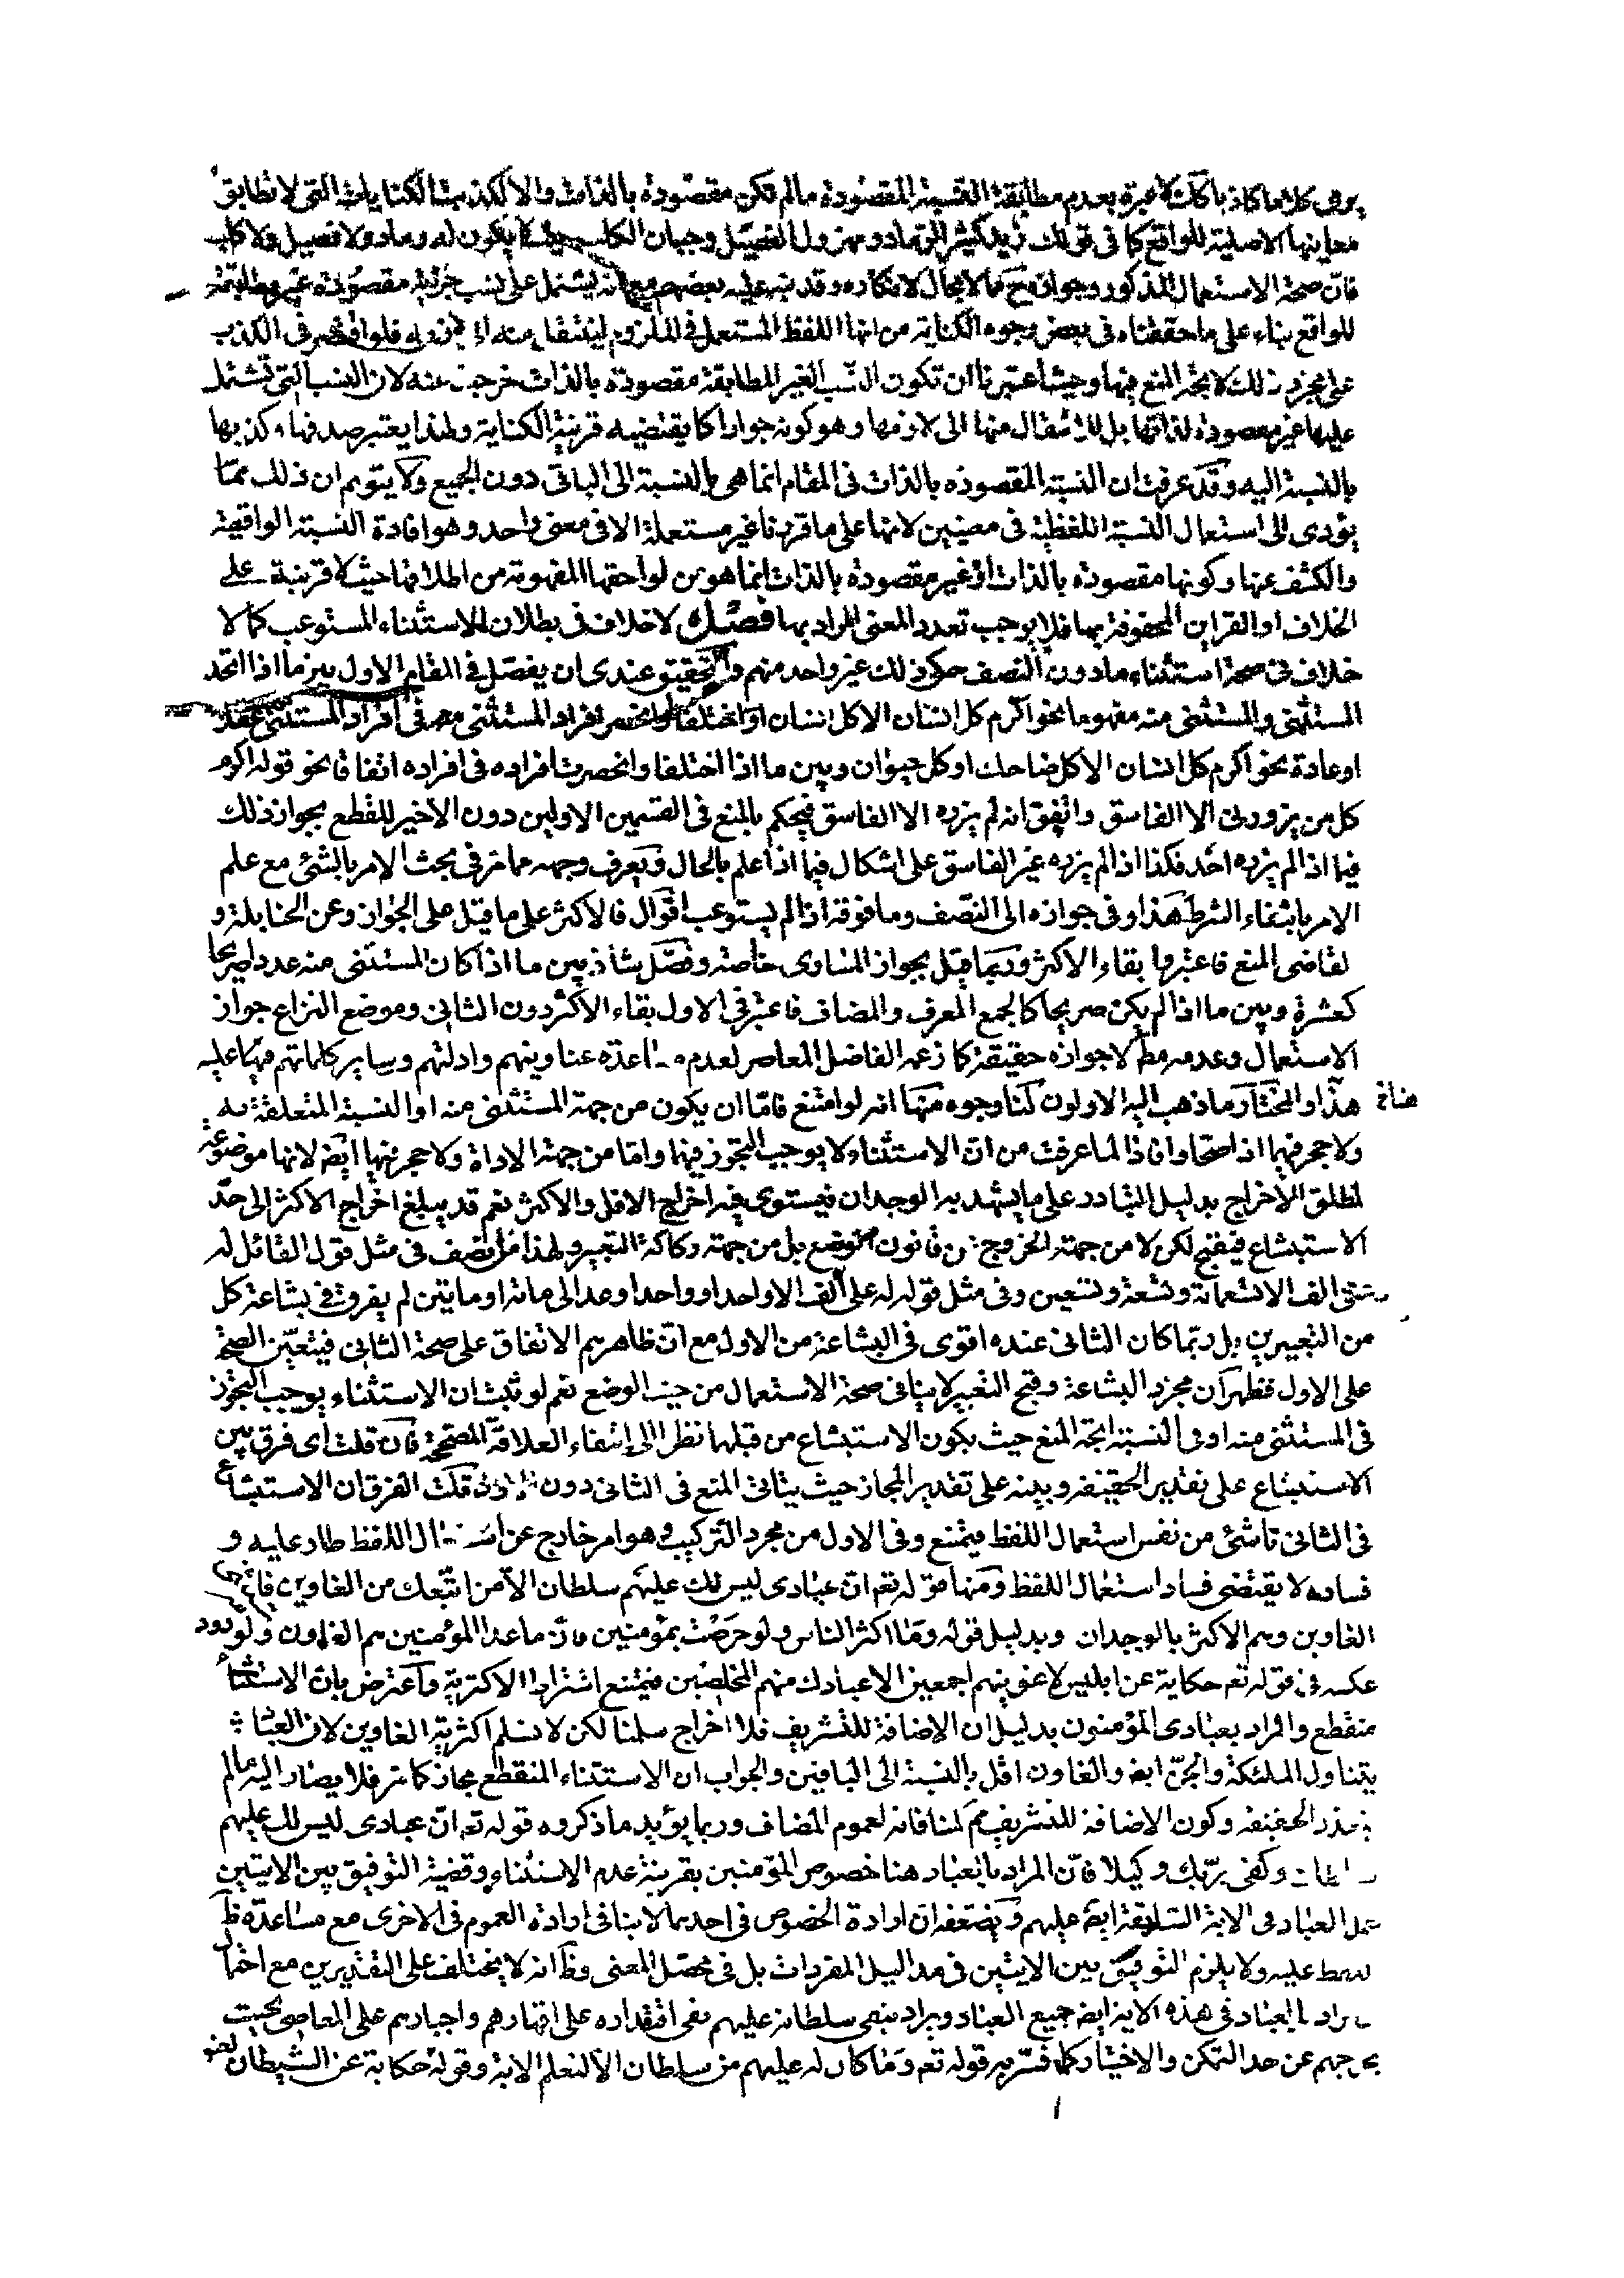 كل منها كاذبا كان لا عبرة بعدم مطابقة النسبة المقصودة ما لم تكن مقصودة بالذات والا لكذبت الكنايات التى لا تطابق
معاينها الاصلية للواقع كما فى قولك زيد كثير الرماد ومهزول الفصيل وجبان الكلب حيث لا يكون له رماد ولا فصيل ولا كلب
فان صحة الاستعمال المذكور وجوازه ح مما لا مجال لانكاره وقد نبه عليه بعضهم مع انه يشتمل على نسب خبرية مقصودة غير مطابقة
للواقع بناء على ما حققناه فى بعض وجوه الكناية من انها اللفظ المستعمل فى الملزوم لينتقل منه الى لازمه فلو اقتصر فى الكذب
على مجرد ذلك لاتجه المنع فيها وحيث اعتبرنا ان تكون النسب الغير المطابقة مقصودة بالذات خرجت عنه لان النسب التى تشتمل
عليها غير مقصودة لذاتها بل للانتقال منها الى لازمها وهو كونه جوادا كما يقتضيه قرينة الكناية ولهذا يعتبر صدقها وكذبها
بالنسبة اليه وقد عرفت ان النسبة المقصوده بالذات فى المقام انما هى بالنسبة الى الباقى دون الجميع ولا يتوهم ان ذلك مما
يؤدى الى استعمال النسبة اللفظية فى معنيين لانها على ما قررنا غير مستعملة الا فى معنى واحد وهو افادة النسبة الواقعية
والكشف عنها وكونها مقصوده بالذات او غير مقصوده بالذات انما هو من لواحقها المفهومة من اطلاقها حيث لا قرينة على
الخلاف او القراين المحفوفة بها فلا يوجب تعدد المعنى المراد بها فصل لا خلاف فى بطلان الاستثناء المستوعب كما لا
خلاف فى صحة استثناء ما دون النصف حكى ذلك غير واحد منهم والتحقيق عندى ان يفصل فى المقام الاول بين ما اذا اتحد
المستثنى والمستثنى منه مفهوما نحو اكرم كل انسان الا كل انسان او اختلفا وانحصر افراد المستثنى منه فى افراد المستثنى عقلا
او عادة نحو اكرم كل انسان الا كل ضاحك او كل حيوان وبين ما اذا اختلفا وانحصرت افراده فى افراده اتفاقا نحو قوله اكرم
كل من يزورنى الا الفاسق واتفق انه لم يزره الا الفاسق فيحكم بالمنع فى القسمين الاولين دون الاخير للقطع بجواز ذلك
فيما اذا لم يزره احد فكذا اذا لم يزره غير الفاسق على اشكال فيما اذا علم بالحال ويعرف وجهه مما مر فى بحث الامر بالشئ مع علم
الامر بانتفاء الشرط هذا وفى جوازه الى النصف وما فوقه اذا لم يستوعب اقوال فالاكثر على ما قيل على الجواز وعن الحنابلة و
لقاضى المنع فاعتبروا بقاء الاكثر وربما قيل بجواز المساوى خاصة وفصل شاذ بين ما اذا كان المستثنى منه عددا صريحا
كعشرة وبين ما اذا لم يكن صريحا كالجمع المعرف والمضاف فاعتبر فى الاول بقاء الاكثر دون الثانى وموضع النزاع جواز
الاستعمال وعدمه مط لا جوازه حقيقة كما زعمه الفاضل المعاصر لعدم مساعدة عناوينهم وادلتهم وساير كلماتهم فيها عليه
هذا والمختار ما ذهب اليه الاولون لنا وجوه منها انه لو امتنع فاما ان يكون من جهة المستثنى منه او النسبة المتعلقة به
هناة
ولا حجر فيهما اذا اتحدا وافاذا لما عرفت من ان الاستثناء لا يوجب التجوز فيها واما من جهة الاداة ولا حجر فيها ايض لانها موضوعة
لمطلق الاخراج بدليل التبادر على ما يشهد به الوجدان فيستوى فيه اخراج الاقل والاكثر نعم قد يبلغ اخراج الاكثر الى حد
الاستبشاع فيقبح لكن لا من جهة الخروج عن قانون الوضع بل من جهة ركاكة التعبير ولهذا من انصف فى مثل قول القائل له
على الف الا تسعمائة وتسعة وتسعين وفى مثل قوله له على الف الا واحدا وواحدا وعد الى مائة او مايتين لم يفرق فى بشاعة كل
من التعبيرين بل ربما كان الثانى عنده اقوى فى البشاعة من الاول مع ان ظاهرهم الاتفاق على صحة الثانى فيتعين الصحة
على الاول فظهر ان مجرد البشاعة وقبح التعبير لا ينافى صحة الاستعمال من حيث الوضع نعم لو ثبت ان الاستثناء يوجب التجوز
فى المستثنى منه او فى النسبة اتجه المنع حيث يكون الاستبشاع من قبلها نظرا الى انتفاء العلاقة المصححة فان قلت اى فرق بين
الاستبشاع على تقدير الحقيقة وبينه على تقدير المجاز حيث يتاتى المنع فى الثانى دون الاول قلت الفرق ان الاستبشاع
فى الثانى ناشئ من نفس استعمال اللفظ فيمتنع وفى الاول من مجرد التركيب وهو امر خارج عن استعمال اللفظ طار عليه و
فساده لا يقتضى فساد استعمال اللفظ ومنها قوله تعم ان عبادى ليس لك عليهم سلطان الا من اتبعك من الغاوين
الغاوين وهم الاكثر بالوجدان وبدليل قوله وما اكثر الناس ولو حرصت بمؤمنين فان ما عدا المؤمنين هم الغاوون ولورود
عكسه فى قوله تعم حكاية عن ابليس لاغوينهم اجمعين الا عبادك منهم المخلصين فيمتنع اشتراط الاكثرية واعترض بان الاستثناء
منقطع والمراد بعبادى المؤمنون بدليل ان الاضافة للتشريف فلا اخراج سلمنا لكن لا نسلم اكثرية الغاوين لان العباد
يتناول الملئكة والجن ايض والغاون اقل بالنسبة الى الباقين والجواب ان الاستثناء المنقطع مجاز كما مر فلا يصار اليه ما لم
يتعذر الحقيقة وكون الاضافة للتشريف مم لمنافاته لعموم المضاف وربما يؤيد ما ذكروه قوله تعم ان عبادى ليس لك عليهم
سلطان وكفى بربك وكيلا فان المراد بالعباد هنا خصوص المؤمنين بقرينة عدم الاستثناء وقضية التوفيق بين الايتين
حمل العباد فى الاية السابقة ايض عليهم ويضعفه ان ارادة الخصوص فى احديهما لا ينافى ارادة العموم فى الاخرى مع مساعدة ظ
اللفظ عليه ولا يلزم التوفيق بين الايتين فى مداليل المفردات بل فى محصل المعنى وظ انه لا يختلف على التقديرين مع احتمال
ان يراد بالعباد فى هذه الاية ايض جميع العباد ويراد بنفى سلطانه عليهم نفى اقتداره على اقهارهم واجبارهم على المعاصى بحيث
يخرجهم عن حد التمكن والاختيار كما فسر به قوله تعم وما كان له عليهم من سلطان الا لنعلم الاية وقوله حكاية عن الشيطان